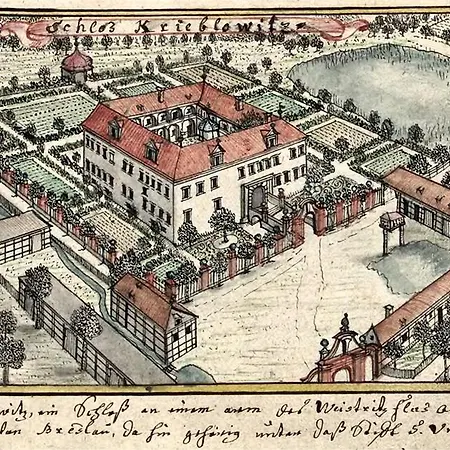 Schlos Krieblowitz
witz, ein Schloß an einem arm des Weistritz flus
Breslau, da hin gehörig unter daß Stifft